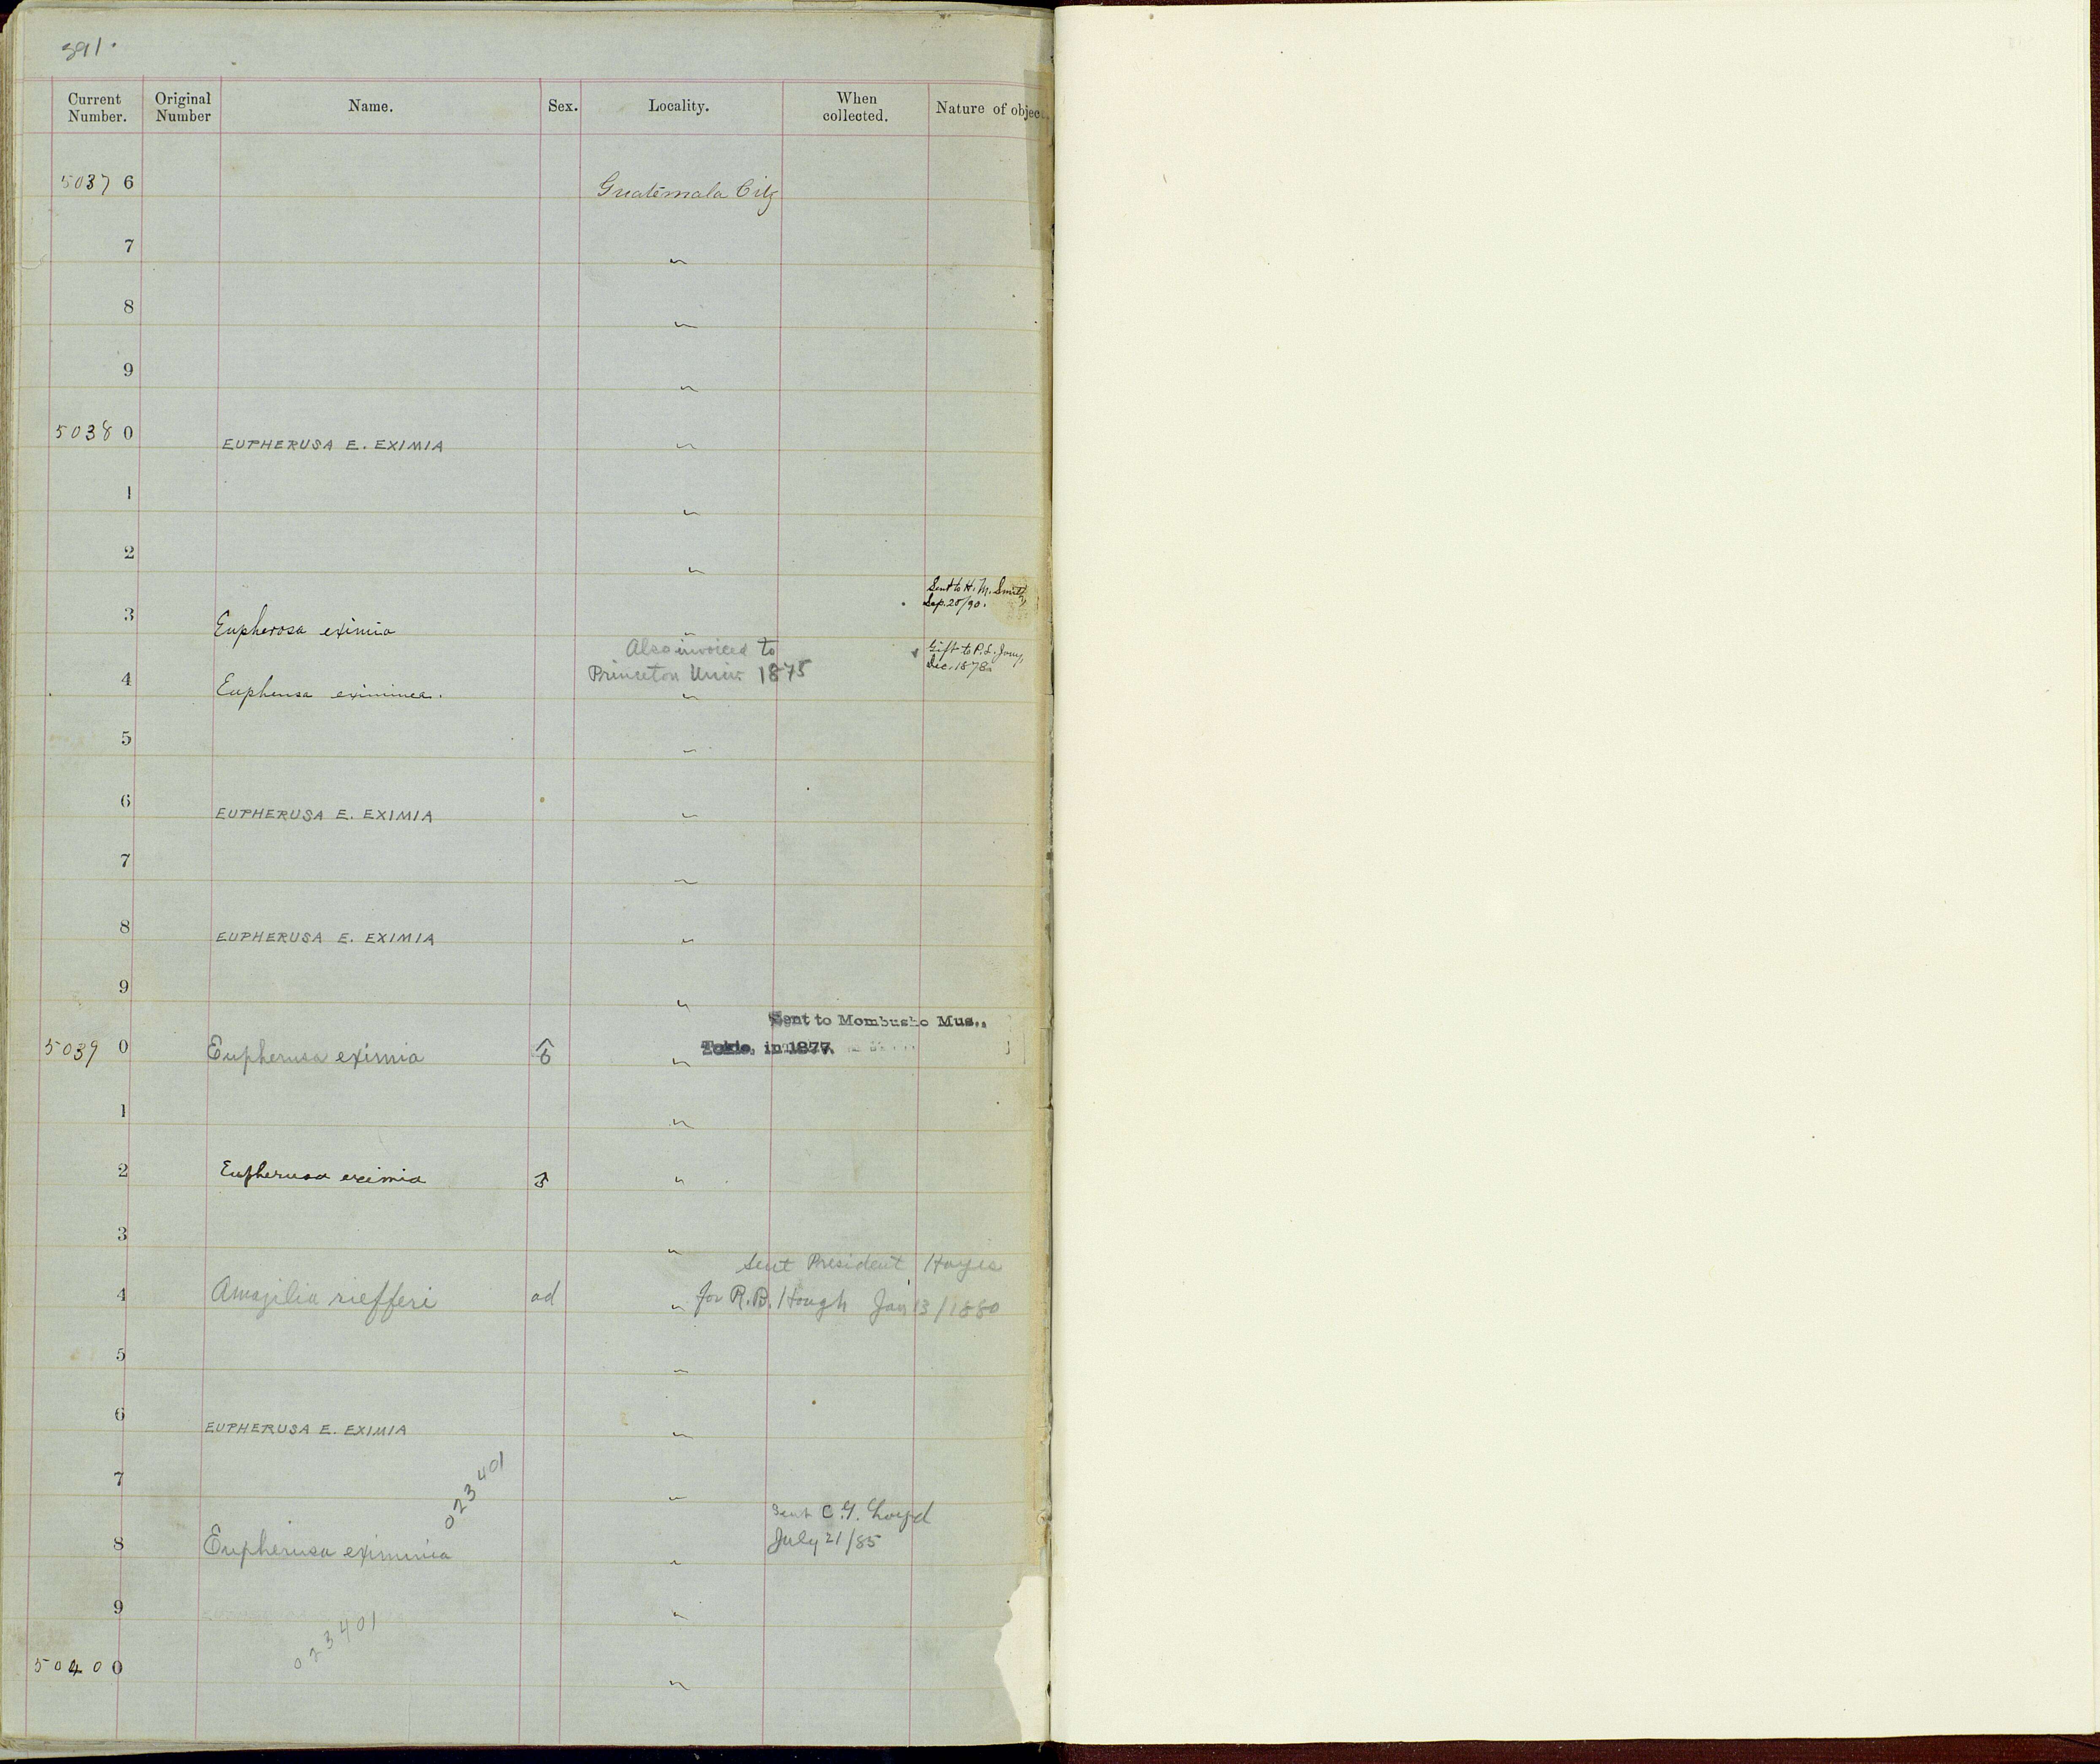 391.
Current Number. Original Number Name. Sex. Locality. When collected. Nature of objec
5037 6 Guatemala City
7 "
8 "
9 "
5038 0 EUPHERUSA E. EXIMIA "
1 "
2 "
Sent to H. M. Smith,
Sep. 20/90.
3 Eupherosa eximia "
Also invoiced to Gift to P. L. Jouy,
Princeton Univ. 1875 Dec. 1878
4 Euphensa eximinea. "
5 "
6 EUPHERUSA E. EXIMIA "
7 "
8 EUPHERUSA E. EXIMIA "
9 "
Sent to Mombusho Mus.,
5039 0 Eupherusa eximia ♂ " Tokio, in 1877.
1 "
2 Eupherusa eximia ♂ "
3 "
Sent President Hayes
4 Amazilia riefferi ad " for R. B. Hough Jan 13/1880
5 "
6 EUPHERUSA E. EXIMIA "
023401
7 "
Sent C. G. Lloyd
8 Eupherusa eximinia " July 21/85
9 "
023401
5040 0 "